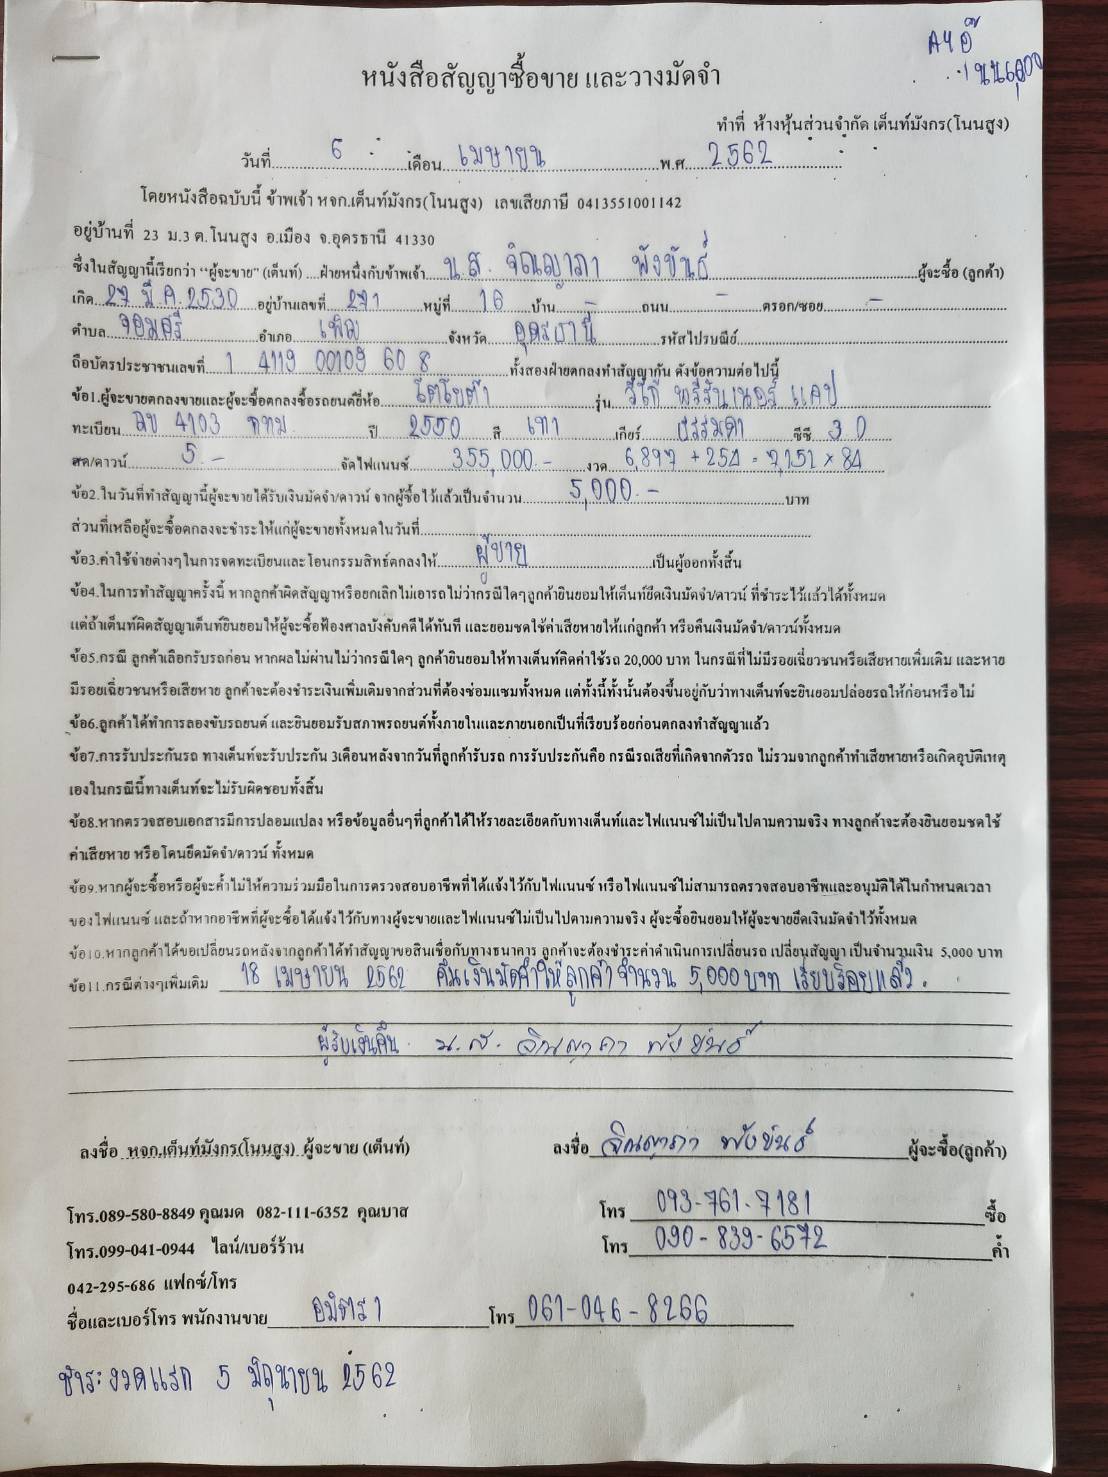 A4 อู๊
หนังสือสัญญาซื้อขาย และวางมัดจำ
ทำที่ ห้างหุ้นส่วนจำกัด เต็นท์มังกร(โนนสูง)
วันที่ 6 เดือน เมษายน พ.ศ 2562
โดยหนังสือฉบับนี้ ข้าพเจ้า หจก.เต็นท์มังกร(โนนสูง) เลขเสียภาษี 0413551001142
อยู่บ้านที่ 23 ม.3 ต.โนนสูง อ.เมือง จ.อุดรธานี 41330
ซึ่งในสัญญานี้เรียกว่า "ผู้จะขาย" (เต็นท์) ....ฝ่ายหนึ่งกับข้าพเจ้า น.ส. จิณญาภา พังขันธ์ ผู้จะซื้อ (ลูกค้า)
เกิด 27 มี.ค. 2530 อยู่บ้านเลขที่ 271 หมู่ที่ 16 บ้าน - ถนน - ตรอก/ซอย -
ตำบล จอมศรี อำเภอ เพ็ญ จังหวัด อุดรธานี รหัสไปรษณีย์
ถือบัตรประชาชนเลขที่ 1 4119 00109 60 8 ทั้งสองฝ่ายตกลงทำสัญญากัน ดังข้อความต่อไปนี้
ข้อ1.ผู้จะขายตกลงขายและผู้จะซื้อตกลงซื้อรถยนต์ยี่ห้อ โตโยต้า รุ่น วีโก้ พรีรันเนอร์ แคป
ทะเบียน ฌข 4103 กทม ปี 2550 สี เทา เกียร์ ธรรมดา ซีซี 3.0
สด/ดาวน์ 5.- จัดไฟแนนซ์ 355,000.- งวด 6,897 + 254 = 7,151 x 84
ข้อ2.ในวันที่ทำสัญญานี้ผู้จะขายได้รับเงินมัดจำ/ดาวน์ จากผู้ซื้อไว้แล้วเป็นจำนวน 5,000.- บาท
ส่วนที่เหลือผู้จะซื้อตกลงจะชำระให้แก่ผู้จะขายทั้งหมดในวันที่
ข้อ3.ค่าใช้จ่ายต่างๆในการจดทะเบียนและโอนกรรมสิทธิ์ตกลงให้ ผู้ขาย เป็นผู้ออกทั้งสิ้น
ข้อ4.ในการทำสัญญาครั้งนี้ หากลูกค้าผิดสัญญาหรือยกเลิกไม่เอารถไม่ว่ากรณีใดๆลูกค้ายินยอมให้เต็นท์ยึดเงินมัดจำ/ดาวน์ ที่ชำระไว้แล้วได้ทั้งหมด
แต่ถ้าเต็นท์ผิดสัญญาเต็นท์ยินยอมให้ผู้จะซื้อฟ้องศาลบังคับคดีได้ทันที และยอมชดใช้ค่าเสียหายให้แก่ลูกค้า หรือคืนเงินมัดจำ/ดาวน์ทั้งหมด
ข้อ5.กรณี ลูกค้าเลือกรับรถก่อน หากผลไม่ผ่านไม่ว่ากรณีใดๆ ลูกค้ายินยอมให้ทางเต็นท์คิดค่าใช้รถ 20,000 บาท ในกรณีที่ไม่มีรอยเฉี่ยวชนหรือเสียหายเพิ่มเติม และหาย
มีรอยเฉี่ยวชนหรือเสียหาย ลูกค้าจะต้องชำระเงินเพิ่มเติมจากส่วนที่ต้องซ่อมแซมทั้งหมด แต่ทั้งนี้ทั้งนั้นต้องขึ้นอยู่กับว่าทางเต็นท์จะยินยอมปล่อยรถให้ก่อนหรือไม่
ข้อ6.ลูกค้าได้ทำการลองขับรถยนต์ และยินยอมรับสภาพรถยนต์ทั้งภายในและภายนอกเป็นที่เรียบร้อยก่อนตกลงทำสัญญาแล้ว
ข้อ7.การรับประกันรถ ทางเต็นท์จะรับประกัน 3เดือนหลังจากวันที่ลูกค้ารับรถ การรับประกันคือ กรณีรถเสียที่เกิดจากตัวรถ ไม่รวมจากลูกค้าทำเสียหายหรือเกิดอุบัติเหตุ
เองในกรณีนี้ทางเต็นท์จะไม่รับผิดชอบทั้งสิ้น
ข้อ8.หากตรวจสอบเอกสารมีการปลอมแปลง หรือข้อมูลอื่นๆที่ลูกค้าได้ให้รายละเอียดกับทางเต็นท์และไฟแนนซ์ไม่เป็นไปตามความจริง ทางลูกค้าจะต้องยินยอมชดใช้
ค่าเสียหาย หรือโดนยึดมัดจำ/ดาวน์ ทั้งหมด
ข้อ9.หากผู้จะซื้อหรือผู้จะค้ำไม่ให้ความร่วมมือในการตรวจสอบอาชีพที่ได้แจ้งไว้กับไฟแนนซ์ หรือไฟแนนซ์ไม่สามารถตรวจสอบอาชีพและอนุมัติได้ในกำหนดเวลา
ของไฟแนนซ์ และถ้าหากอาชีพที่ผู้จะซื้อได้แจ้งไว้กับทางผู้จะขายและไฟแนนซ์ไม่เป็นไปตามความจริง ผู้จะซื้อยินยอมให้ผู้จะขายยึดเงินมัดจำไว้ทั้งหมด
ข้อ10.หากลูกค้าได้ขอเปลี่ยนรถหลังจากลูกค้าได้ทำสัญญาขอสินเชื่อกับทางธนาคาร ลูกค้าจะต้องชำระค่าดำเนินการเปลี่ยนรถ เปลี่ยนสัญญา เป็นจำนวนเงิน 5,000 บาท
ข้อ11.กรณีต่างๆเพิ่มเติม 18 เมษายน 2562 คืนเงินมัดจำให้ลูกค้า จำนวน 5,000 บาท เรียบร้อยแล้ว.
ผู้รับเงินคืน น.ส. จิณญาภา พังขันธ์
ลงชื่อ หจก.เต็นท์มังกร(โนนสูง) ผู้จะขาย (เต็นท์) ลงชื่อ จิณญาภา พังขันธ์ ผู้จะซื้อ(ลูกค้า)
โทร.089-580-8849 คุณมด 082-111-6352 คุณบาส โทร 093-761-7181 ซื้อ
โทร.099-041-0944 ไลน์/เบอร์ร้าน โทร 090-839-6572 ค้ำ
042-295-686 แฟกซ์/โทร
ชื่อและเบอร์โทร พนักงานขาย อมิตรา โทร 061-046-8266
ชำระงวดแรก 5 มิถุนายน 2562